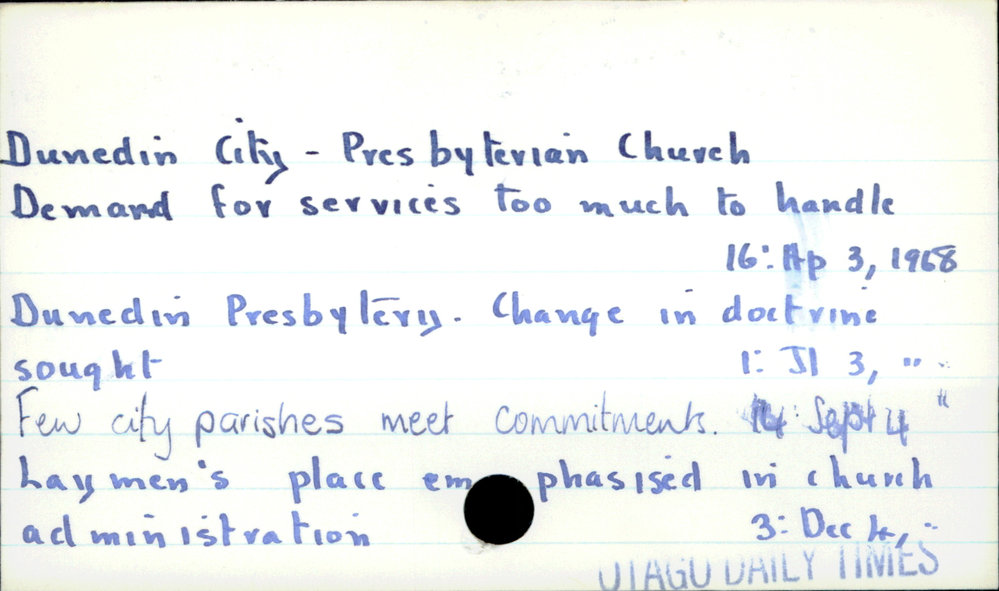 Dunedin City - Presbyterian Church
Demand for services too much to handle
16: Ap 3, 1968
Dunedin Presbytery. Change in doctrine
sought 1: Jl 3, "
Few city parishes meet commitments. 14: Sept 4 "
Laymen's place emphasised in church
administration 3: Dec 4, "
OTAGO DAILY TIMES